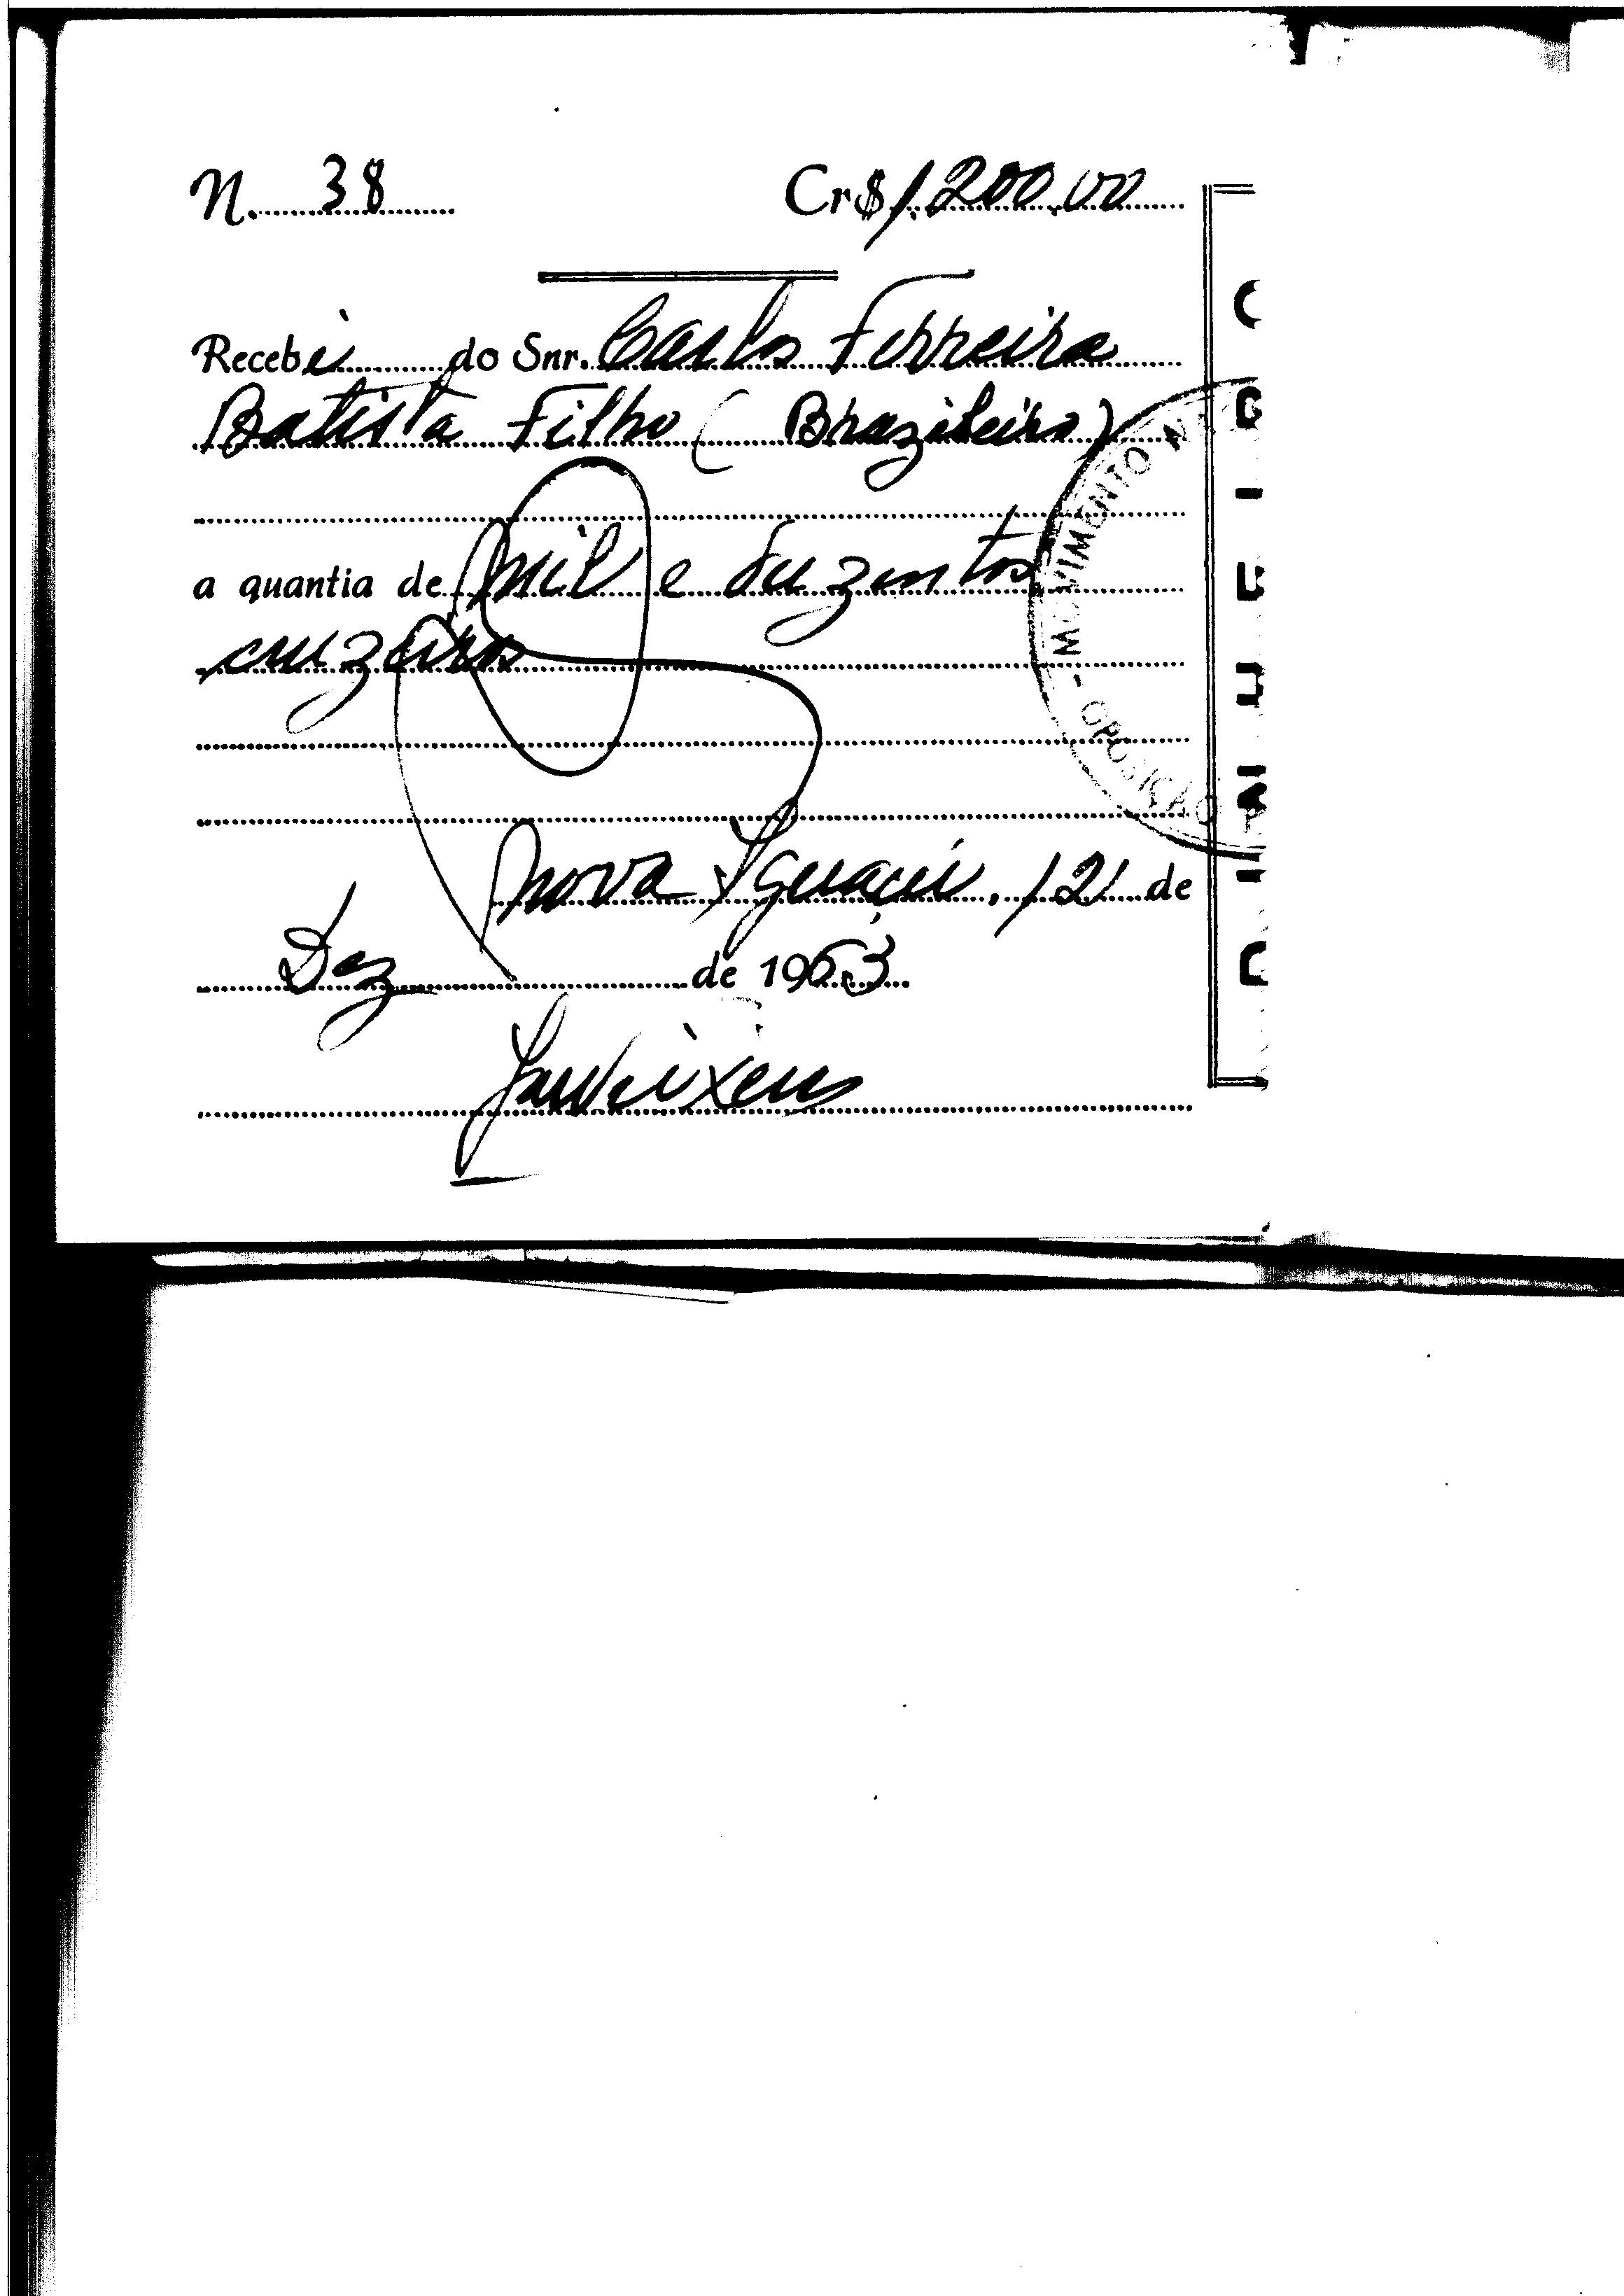 N. 38 Cr$ 1.200,00
Recebi do Snr. Carlos Ferreira
Batista Filho (Brazileiro)
a quantia de mil e duzentos
cruzeiros
Nova Iguaçu, 12 de
Dez de 1963
MOVIMENTO N
- OPOSIÇÃO P